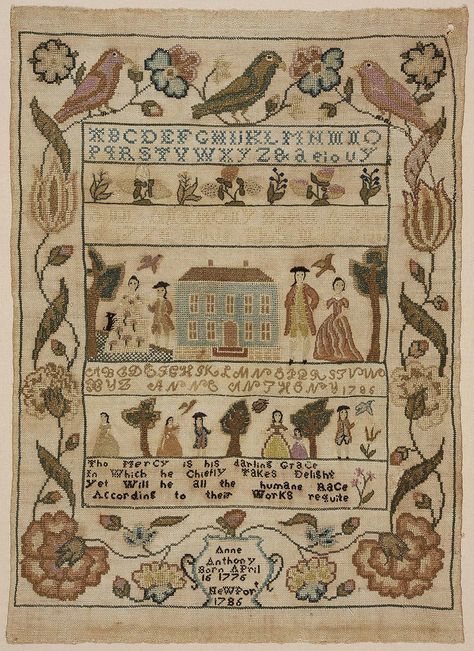 ABCDEFGHIJKLMNO
PQRSTVWXYZ&aeiouy
ABCDEFGHIKLMNOPQRSTVUW
XYZ ANNE ANTHONY 1786
Tho Mercy is his darling Grace
In Which he Chiefly Takes Delight
Yet Will he all the humane Race
According to their Works requite
Anne
Anthony
Born April
16 1776
NeWPort
1786